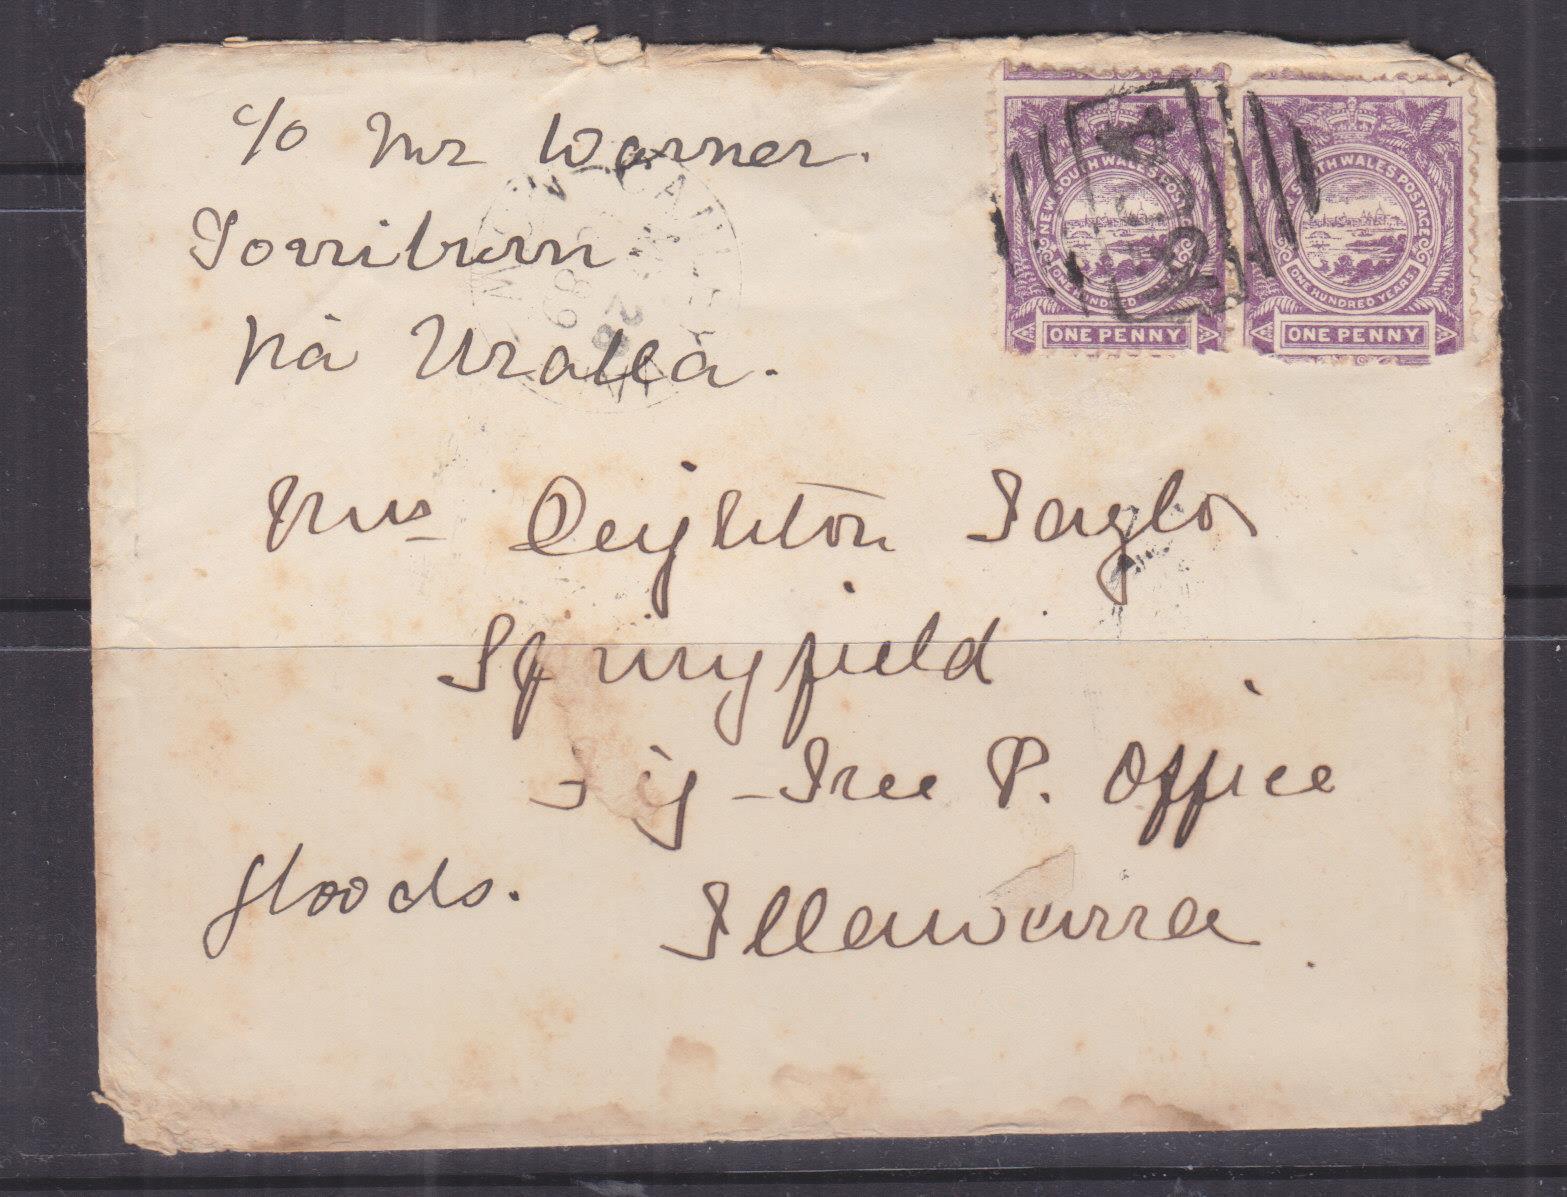 c/o Mr Warner.
Torriburn
via Uralla.
NEW SOUTH WALES POSTAGE
ONE HUNDRED
ONE PENNY
SOUTH WALES POSTAGE
ONE HUNDRED YEARS
ONE PENNY
Mrs Leighton Taylor
Springfield
Fig-Tree P. Office
Illawarra
Goods.